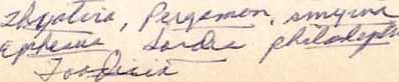 Thyatira, Pergamon, Smyrna
Ephesus Sardis Philadelph
Laodicia